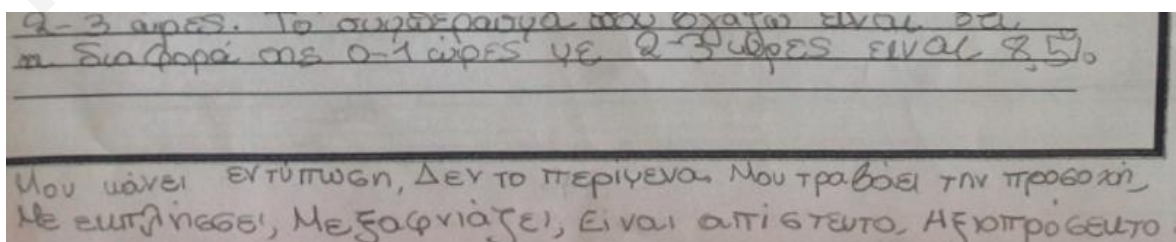 2-3 ώρες. Το συμπέρασμα που βγάζω είναι ότι
η διαφορά της 0-1 ώρες με 2-3 ώρες είναι 8,5.
Μου κάνει εντύπωση, Δεν το περίμενα, Μου τραβάει την προσοχή,
Με εκπλήσσει, Με ξαφνιάζει, Είναι απίστευτο, Αξιοπρόσεκτο